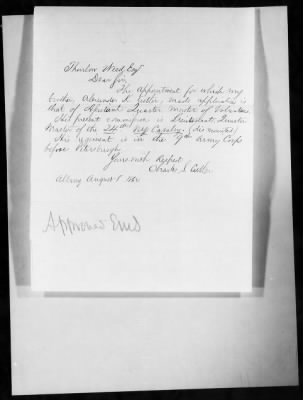 Thurlow Weed Esq
Dear Sir,
The appointment for which my
brother, Alexander D. Cutler, made application is
that of Assistant Quarter Master of Volunteers
His present commission is Lieutenant, Quarter
Master of the 24th N.Y. Cavalry (dismounted)
This regiment is in the 9th Army Corps
before Petersburgh
Yours with Respect
Charles S. Cutler
Albany August 8
Approved